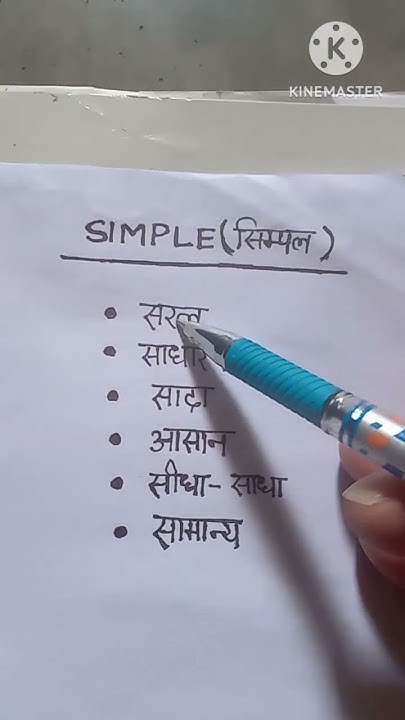 KINEMASTER
SIMPLE (सिम्पल)
• सरल
• साधार
• सादा
• आसान
• सीधा - साधा
• सामान्य